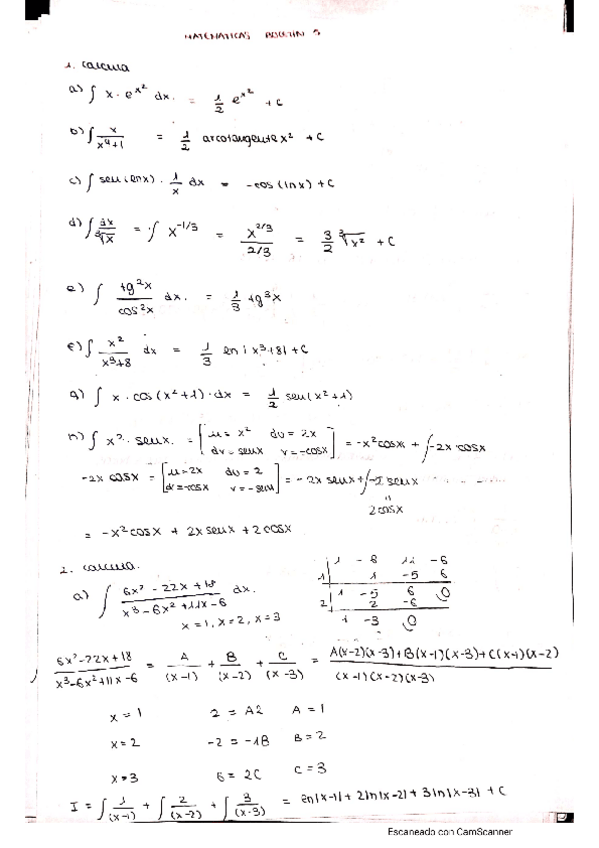 MATEMÁTICAS BOLETÍN 5
1. calcula
a) ∫ x · e^x² dx = 1/2 e^x² + C
b) ∫ x/x⁴+1 = 1/2 arcotangente x² + C
c) ∫ sen(lnx) · 1/x dx = -cos(lnx) + C
d) ∫ dx/∛x = ∫ x^-1/3 = x^2/3 / 2/3 = 3/2 ∛x² + C
e) ∫ tg²x/cos²x dx = 1/3 tg³x
f) ∫ x²/x³+8 dx = 1/3 ln|x³+8| + C
g) ∫ x · cos(x²+1) · dx = 1/2 sen(x²+1)
h) ∫ x² · senx = [u = x² du = 2x dv = senx v = -cosx] = -x²cosx + ∫ -2x cosx
-2x cosx = [u = 2x du = 2 dv = -cosx v = -senx] = -2x senx + ∫ senx
2cosx
= -x²cosx + 2x senx + 2cosx
2. calcula.
a) ∫ 6x² - 22x + 18 / x³ - 6x² + 11x - 6 dx.
x = 1, x = 2, x = 3
1 -6 11 -6
1 1 -5 6
1 -5 6 0
2 2 -6
1 -3 0
6x² - 22x + 18 / x³ - 6x² + 11x - 6 = A/(x-1) + B/(x-2) + C/(x-3) = A(x-2)(x-3) + B(x-1)(x-3) + C(x-1)(x-2) / (x-1)(x-2)(x-3)
x = 1 2 = A2 A = 1
x = 2 -2 = -1B B = 2
x = 3 6 = 2C C = 3
I = ∫ 1/(x-1) + ∫ 2/(x-2) + ∫ 3/(x-3) = ln|x-1| + 2ln|x-2| + 3ln|x-3| + C
Escaneado con CamScanner